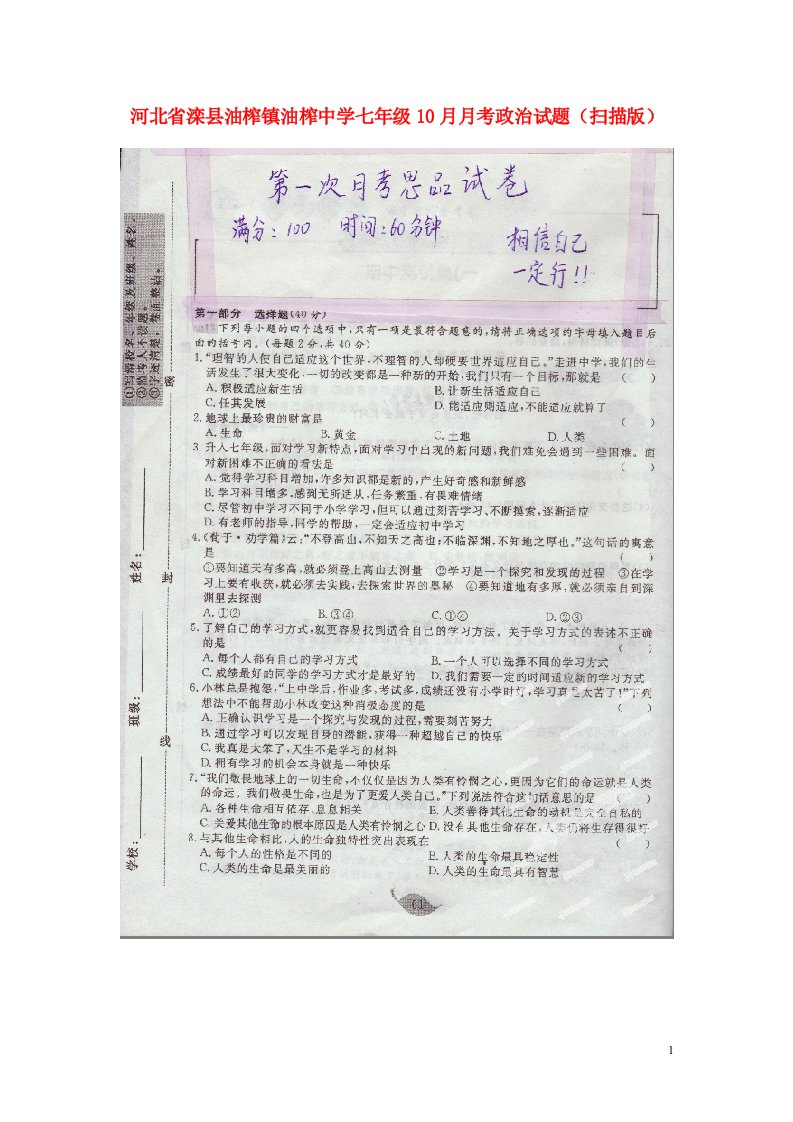 河北省滦县油榨镇油榨中学七年级10月月考政治试题（扫描版）
第一次月考思品试卷
满分：100 时间：60分钟
相信自己
一定行!!
第一部分 选择题(40分)
下列每小题的四个选项中,只有一项是最符合题意的,请将正确选项的字母填入题目后
面的括号内。(每题2分,共40分)
1.“理智的人使自己适应这个世界,不理智的人却硬要世界适应自己。”走进中学,我们的生
活发生了很大变化,一切的改变都是一种新的开始,我们只有一个目标,那就是 ( )
A.积极适应新生活 B.让新生活适应自己
C.任其发展 D.能适应则适应,不能适应就算了
2.地球上最珍贵的财富是 ( )
A.生命 B.黄金 C.土地 D.人类
3 升入七年级,面对学习新特点,面对学习中出现的新问题,我们难免会遇到一些困难。面
对新困难不正确的看法是 ( )
A.觉得学习科目增加,许多知识都是新的,产生好奇感和新鲜感
B.学习科目增多,感到无所适从,任务繁重,有畏难情绪
C.尽管初中学习不同于小学学习,但可以通过刻苦学习、不断摸索,逐渐适应
D.有老师的指导,同学的帮助,一定会适应初中学习
4.《荀子·劝学篇》云:“不登高山,不知天之高也;不临深渊,不知地之厚也。”这句话的寓意
是 ( )
①要知道天有多高,就必须登上高山去测量 ②学习是一个探究和发现的过程 ③在学
习上要有收获,就必须去实践,去探索世界的奥秘 ④要知道地有多厚,就必须亲自到深
渊里去探测
A.①② B.③④ C.①④ D.②③
5.了解自己的学习方式,就更容易找到适合自己的学习方法。关于学习方式的表述不正确
的是 ( )
A.每个人都有自己的学习方式 B.一个人可以选择不同的学习方式
C.成绩最好的同学的学习方式才是最好的 D.我们需要一定的时间适应新的学习方式
6.小林总是抱怨:“上中学后,作业多,考试多,成绩还没有小学时好,学习真是太苦了!”下列
想法中不能帮助小林改变这种消极态度的是 ( )
A.正确认识学习是一个探究与发现的过程,需要刻苦努力
B.通过学习可以发现自身的潜能,获得一种超越自己的快乐
C.我真是太笨了,天生不是学习的材料
D.拥有学习的机会本身就是一种快乐
7.“我们敬畏地球上的一切生命,不仅仅是因为人类有怜悯之心,更因为它们的命运就是人类
的命运。我们敬畏生命,也是为了更爱人类自己。”下列说法符合这句话意思的是 ( )
A.各种生命相互依存、息息相关 B.人类善待其他生命的动机是完全自私的
C.关爱其他生命的根本原因是人类有怜悯之心 D.没有其他生命存在,人类仍将生存得很好
8.与其他生命相比,人的生命独特性突出表现在 ( )
A.每个人的性格是不同的 B.人类的生命最具稳定性
C.人类的生命是最美丽的 D.人类的生命最具有智慧
学校：
班级：
姓名：
密
封
线
1